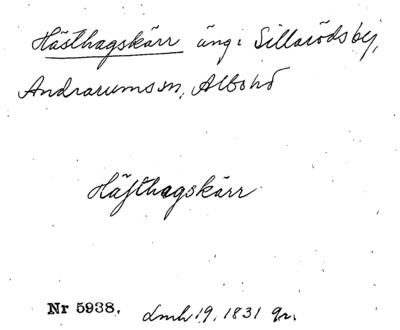 Hästhagskärr äng: Sillarödsbej,
Andrarums sn, Albohd
Häfthagskärr
Nr 5938. lmh 19, 1831 qr.